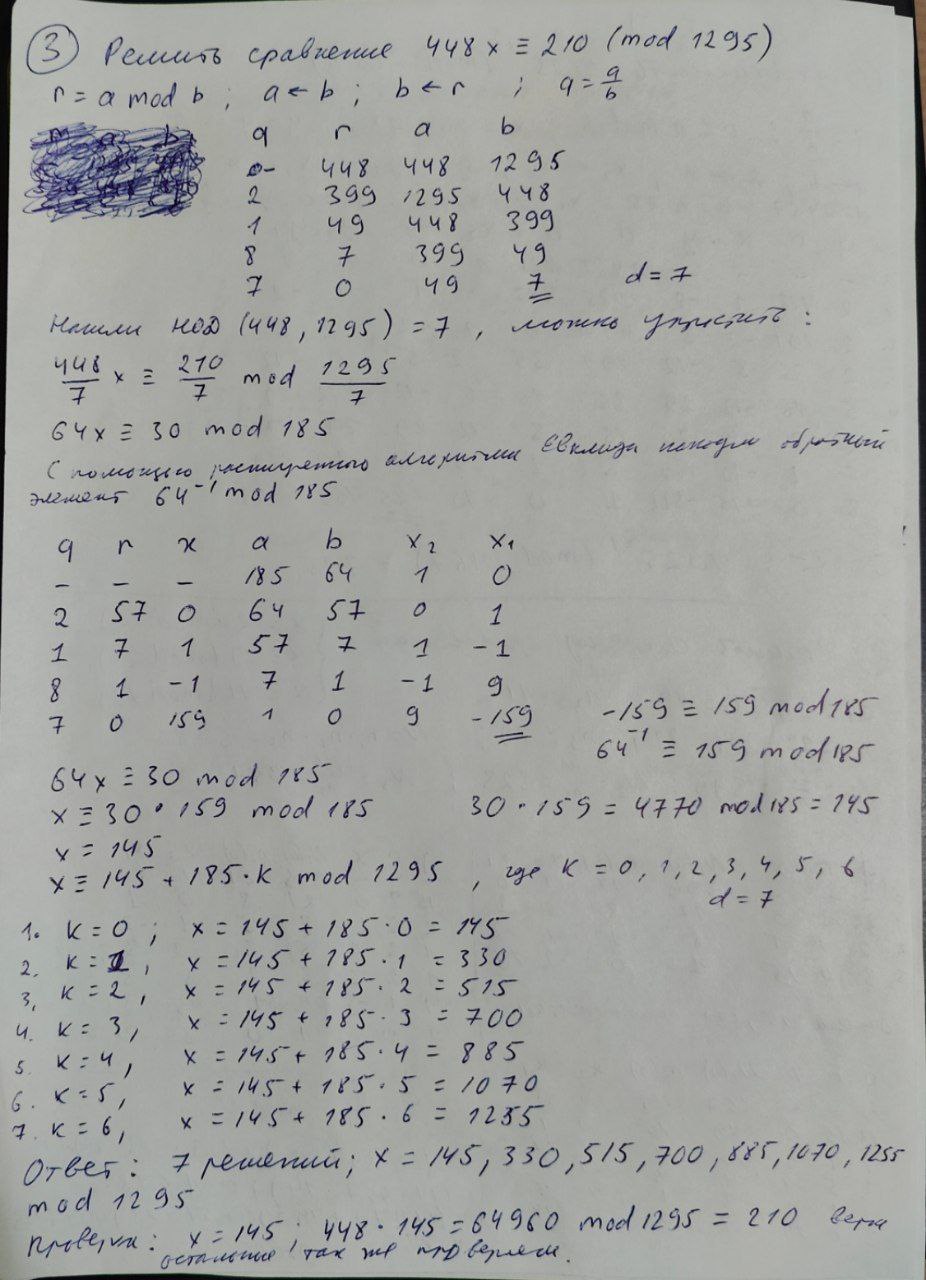 3 Решить сравнение 448x ≡ 210 (mod 1295)
r = a mod b ; a ← b ; b ← r ; q = a/b
q r a b
0- 448 448 1295
2 399 1295 448
1 49 448 399
8 7 399 49
7 0 49 7 d = 7
Нашли НОД (448, 1295) = 7 , можно упростить :
448/7 x ≡ 210/7 mod 1295/7
64x ≡ 30 mod 185
С помощью расширенного алгоритма Евклида находим обратный
элемент 64⁻¹ mod 185
q r x a b x₂ x₁
– – – 185 64 1 0
2 57 0 64 57 0 1
1 7 1 57 7 1 -1
8 1 -1 7 1 -1 9
7 0 159 1 0 9 -159 -159 ≡ 159 mod 185
64⁻¹ ≡ 159 mod 185
64x ≡ 30 mod 185
x ≡ 30 · 159 mod 185 30 · 159 = 4770 mod 185 = 145
x = 145
x ≡ 145 + 185·k mod 1295 , где k = 0, 1, 2, 3, 4, 5, 6
d = 7
1. k = 0 ; x = 145 + 185 · 0 = 145
2. k = 1, x = 145 + 185 · 1 = 330
3, k = 2 , x = 145 + 185 · 2 = 515
4. k = 3, x = 145 + 185 · 3 = 700
5. k = 4, x = 145 + 185 · 4 = 885
6. k = 5, x = 145 + 185 · 5 = 1070
7. k = 6, x = 145 + 185 · 6 = 1255
Ответ : 7 решений; x = 145, 330, 515, 700, 885, 1070, 1255
mod 1295
Проверка : x = 145 ; 448 · 145 = 64960 mod 1295 = 210 верно
остальные так же проверяем.